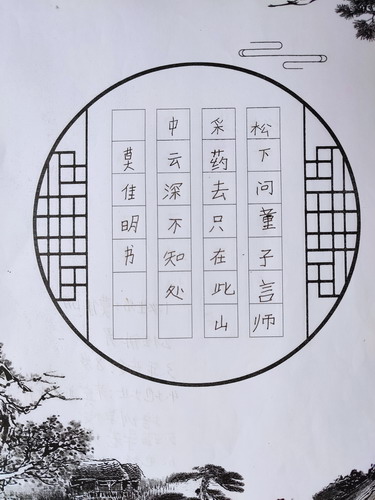 松下问董子言师
采药去只在此山
中云深不知处
莫佳明书